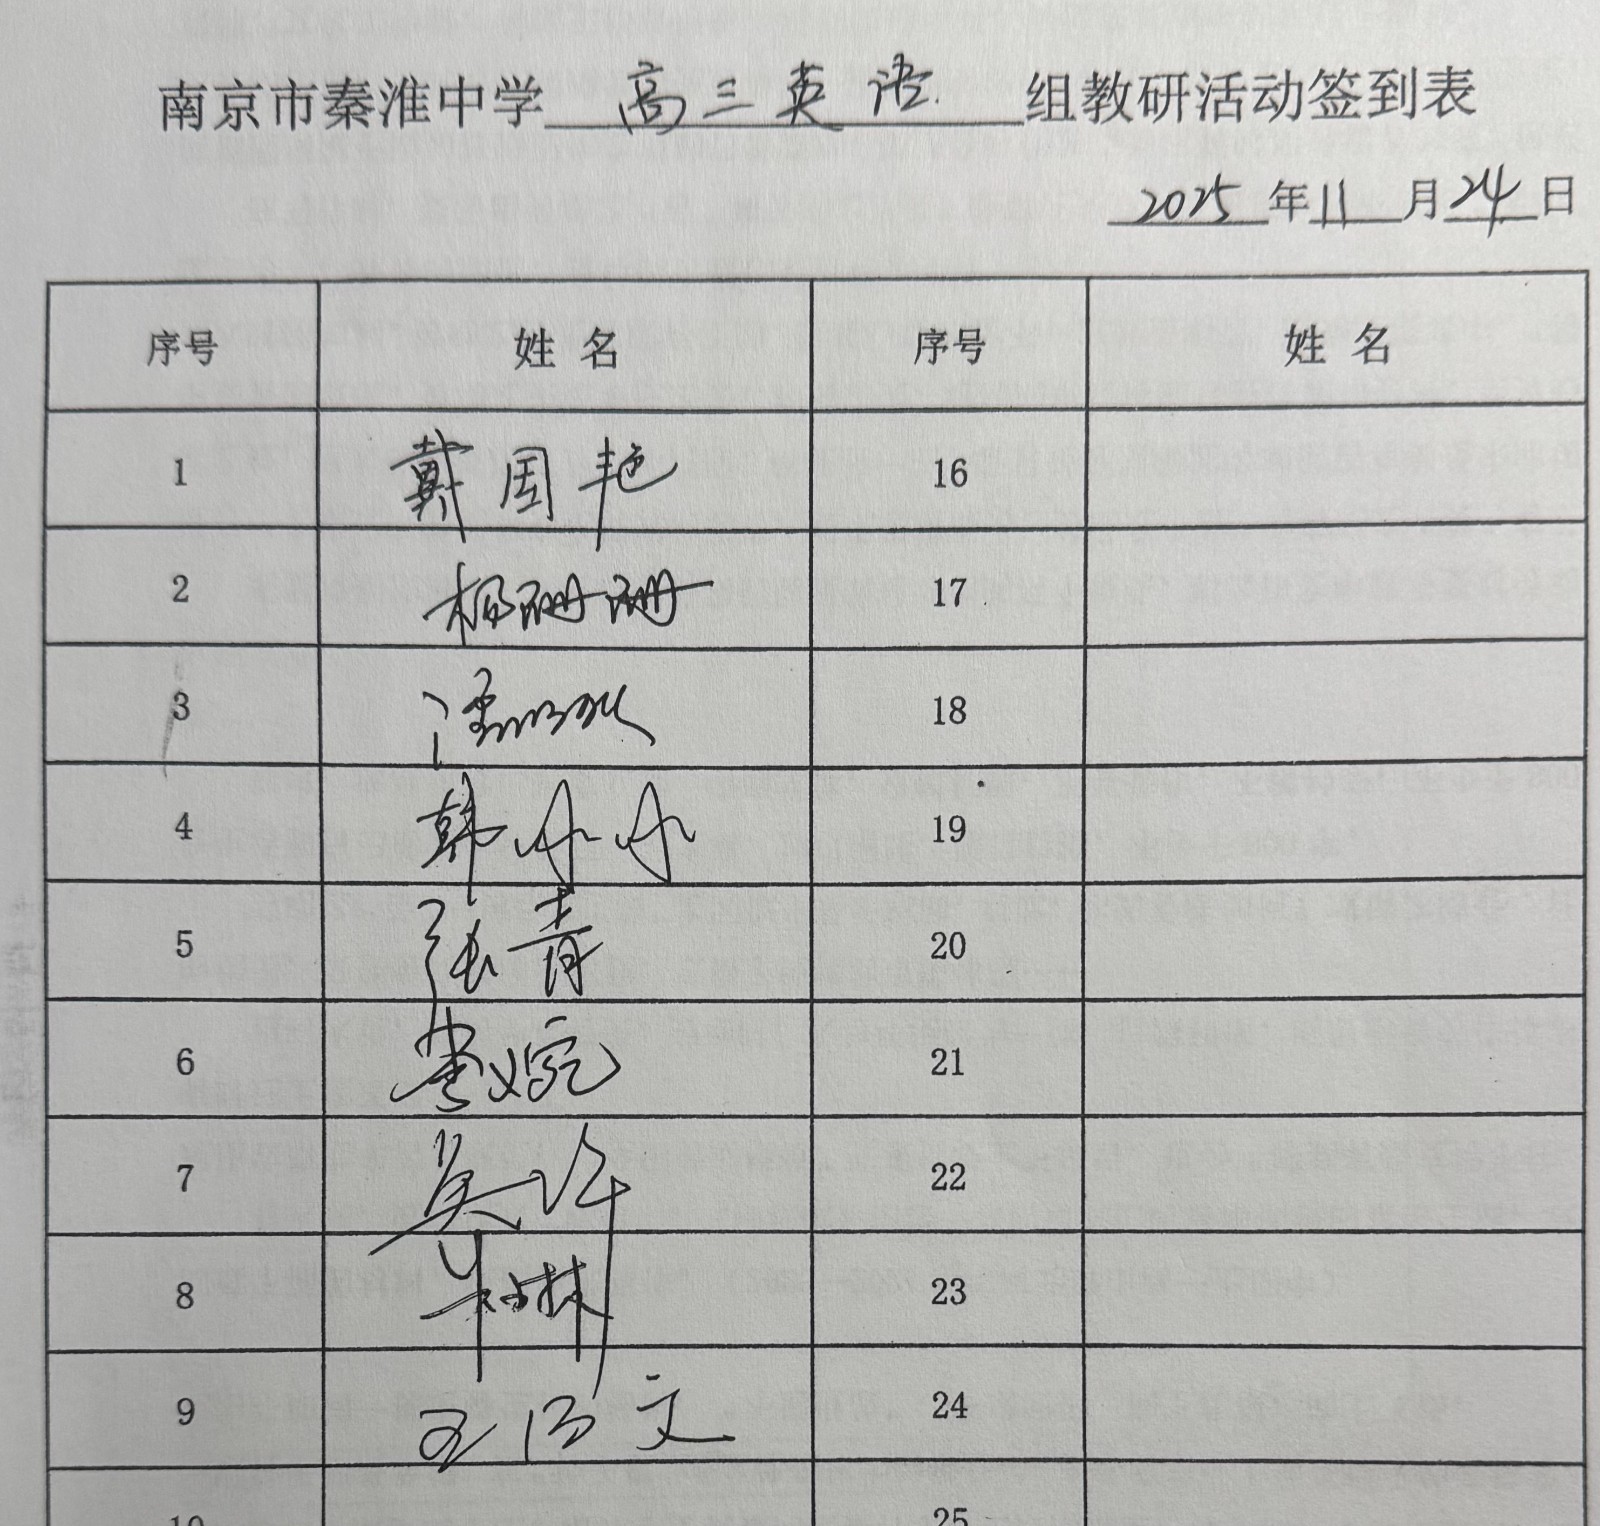 南京市秦淮中学 高三英语 组教研活动签到表
2025 年 11 月 24 日
序号 姓名 序号 姓名
1 戴国艳 16
2 杨珊珊 17
3 18
4 韩小小 19
5 张青 20
6 婉 21
7 吴许 22
8 朱林 23
9 王文 24
10 25